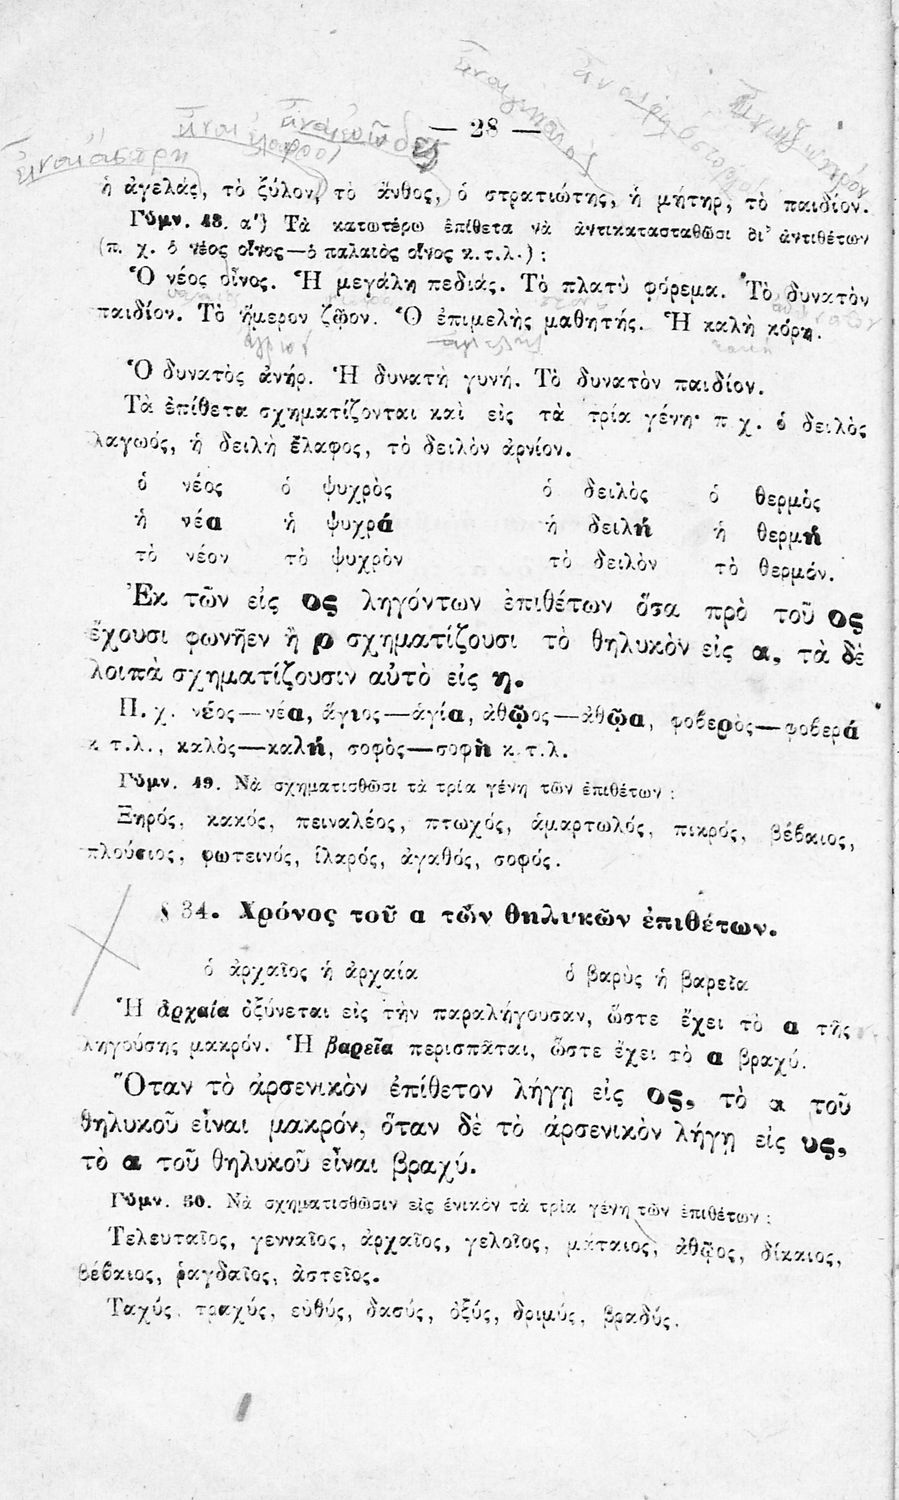 — 28 —
ἡ ἀγελάς, τὸ ξύλον, τὸ ἄνθος, ὁ στρατιώτης, ἡ μήτηρ, τὸ παιδίον.
Γύμν. 48. α΄) Τὰ κατωτέρω ἐπίθετα νὰ ἀντικατασταθῶσι δι᾽ ἀντιθέτων
(π. χ. ὁ νέος οἶνος—ὁ παλαιὸς οἶνος κ.τ.λ.) :
Ὁ νέος οἶνος. Ἡ μεγάλη πεδιάς. Τὸ πλατὺ φόρεμα. Τὸ δυνατὸν
παλαιὸς στενὸ
παιδίον. Τὸ ἥμερον ζῷον. Ὁ ἐπιμελὴς μαθητής. Ἡ καλὴ κόρη.
ἄγριον ἀμελὴς κακὴ
Ὁ δυνατὸς ἀνήρ. Ἡ δυνατὴ γυνή. Τὸ δυνατὸν παιδίον.
Τὰ ἐπίθετα σχηματίζονται καὶ εἰς τὰ τρία γένη· π χ. ὁ δειλὸς
λαγωός, ἡ δειλὴ ἔλαφος, τὸ δειλὸν ἀρνίον.
ὁ νέος ὁ ψυχρὸς ὁ δειλὸς ὁ θερμὸς
ἡ νέα ἡ ψυχρά ἡ δειλή ἡ θερμή
τὸ νέον τὸ ψυχρὸν τὸ δειλὸν τὸ θερμόν.
Ἐκ τῶν εἰς ος ληγόντων ἐπιθέτων ὅσα πρὸ τοῦ ος
ἔχουσι φωνῆεν ἢ ρ σχηματίζουσι τὸ θηλυκὸν εἰς α, τὰ δὲ
λοιπὰ σχηματίζουσιν αὐτὸ εἰς η.
Π. χ. νέος—νέα, ἅγιος—ἁγία, ἀθῷος—ἀθῷα, φοβερὸς—φοβερά
κ τ.λ., καλὸς—καλή, σοφὸς—σοφὴ κ.τ.λ.
Γύμν. 49. Νὰ σχηματισθῶσι τὰ τρία γένη τῶν ἐπιθέτων :
Ξηρός, κακός, πειναλέος, πτωχός, ἁμαρτωλός, πικρός, βέβαιος,
πλούσιος, φωτεινός, ἱλαρός, ἀγαθός, σοφός.
§ 34. Χρόνος τοῦ α τῶν θηλυκῶν ἐπιθέτων.
ὁ ἀρχαῖος ἡ ἀρχαία ὁ βαρὺς ἡ βαρεῖα
Ἡ ἀρχαία ὀξύνεται εἰς τὴν παραλήγουσαν, ὥστε ἔχει τὸ α τῆς
ληγούσης μακρόν. Ἡ βαρεῖα περισπᾶται, ὥστε ἔχει τὸ α βραχύ.
Ὅταν τὸ ἀρσενικὸν ἐπίθετον λήγῃ εἰς ος, τὸ α τοῦ
θηλυκοῦ εἶναι μακρόν, ὅταν δὲ τὸ ἀρσενικὸν λήγῃ εἰς υς,
τὸ α τοῦ θηλυκοῦ εἶναι βραχύ.
Γύμν. 50. Νὰ σχηματισθῶσιν εἰς ἑνικὸν τὰ τρία γένη τῶν ἐπιθέτων :
Τελευταῖος, γενναῖος, ἀρχαῖος, γελοῖος, μάταιος, ἀθῷος, δίκαιος,
βέβαιος, ῥαγδαῖος, ἀστεῖος.
Ταχύς, τραχύς, εὐθύς, δασύς, ὀξύς, δριμύς, βραδύς.